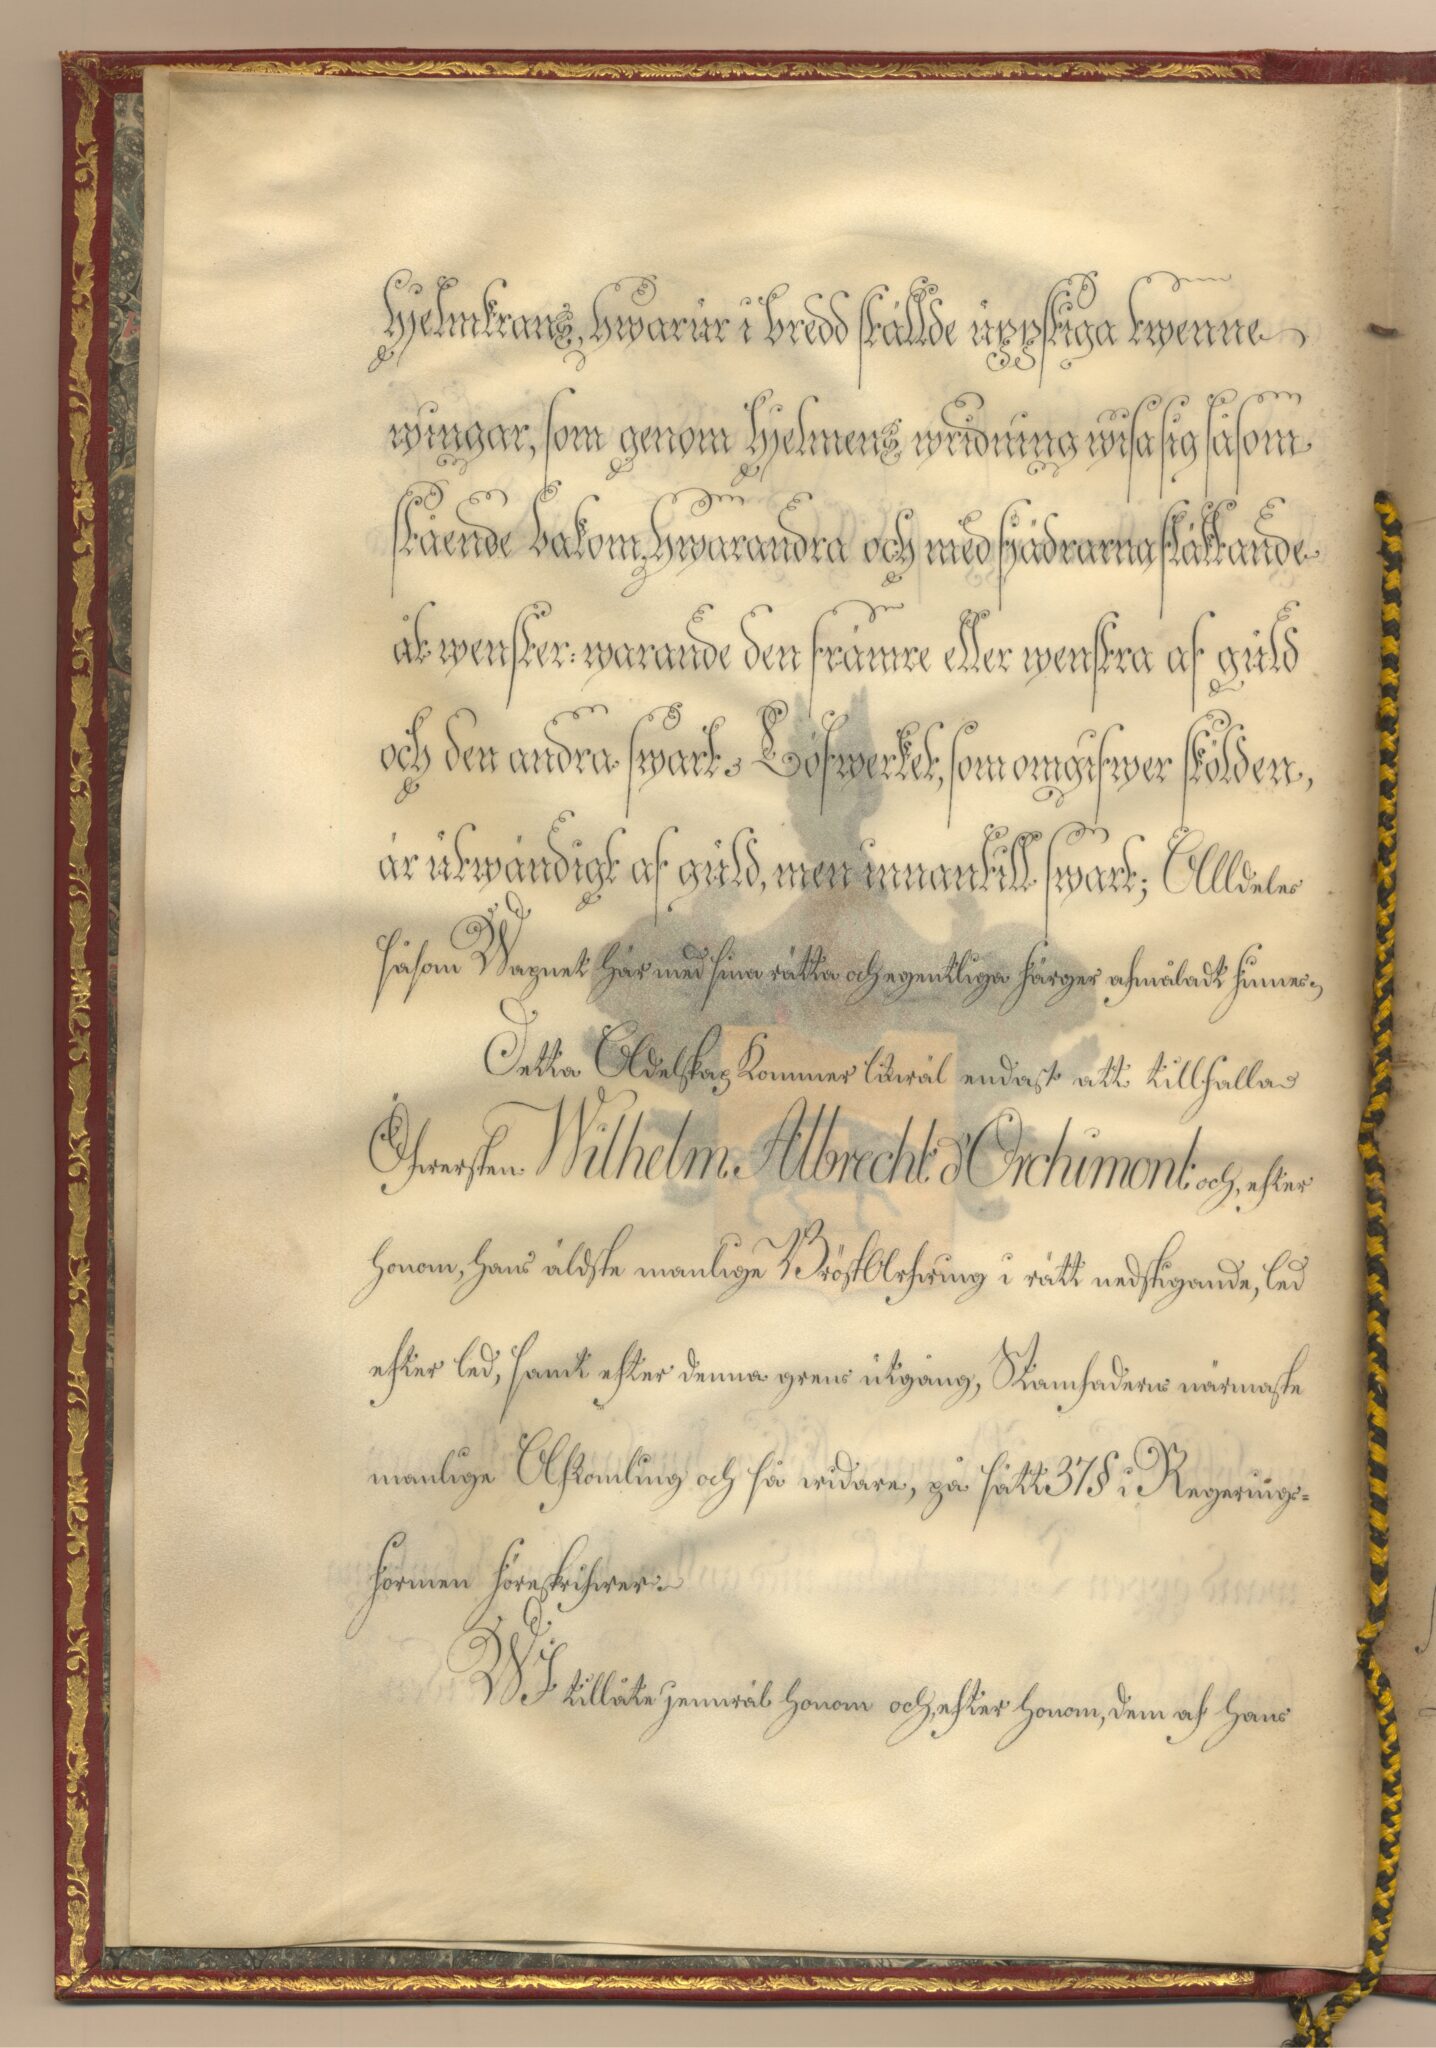 hjelmkrans, hwarur i bredd ställde uppstiga twenne
wingar, som genom hjelmens wridning wisa sig såsom
stående bakom hwarandra och med fjädrarna stäkkande
åt wenster: warande den främre eller wenstra af guld
och den andra swart. Löfwerket, som omgifwer skölden,
är utwändigt af guld, men innantill swart; Alldeles
såsom Wapnet här med sina rätta och egentliga färger afmåladt finnes.
Detta Adelskap kommer likwäl endast att tillfalla
Öfwersten Wilhelm Albrecht d'Orchimont och, efter
honom, hans äldste manlige BröstArfwing i rätt nedstigande, led
efter led, samt efter denna grens utgång, Stamfaderns närmaste
manlige Afkomling och så widare, på sätt 37 § i Regerings=
formen föreskrifwer:
WJ tillåte jemwäl honom och, efter honom, dem af hans